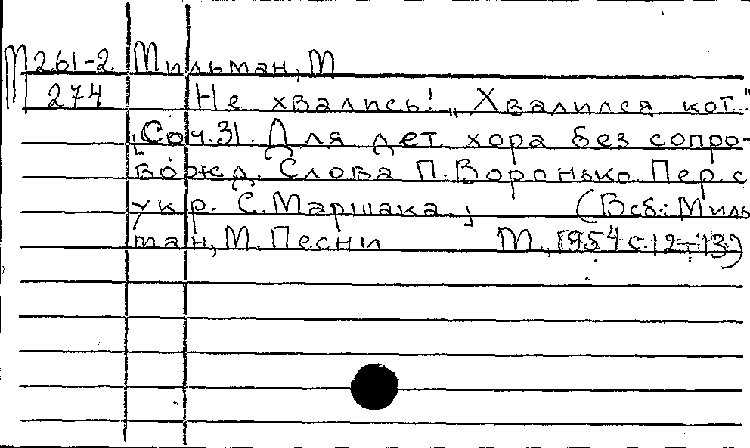 М261-2 Мильман, М
274 Не хвались! „Хвалился кот.."
[Соч. 3]. Для дет. хора без сопро-
вожд. Слова П. Воронько. Пер. с
укр. С. Маршака.; (В сб.: Миль
ман, М. Песни М., 1954 с. 12-13)